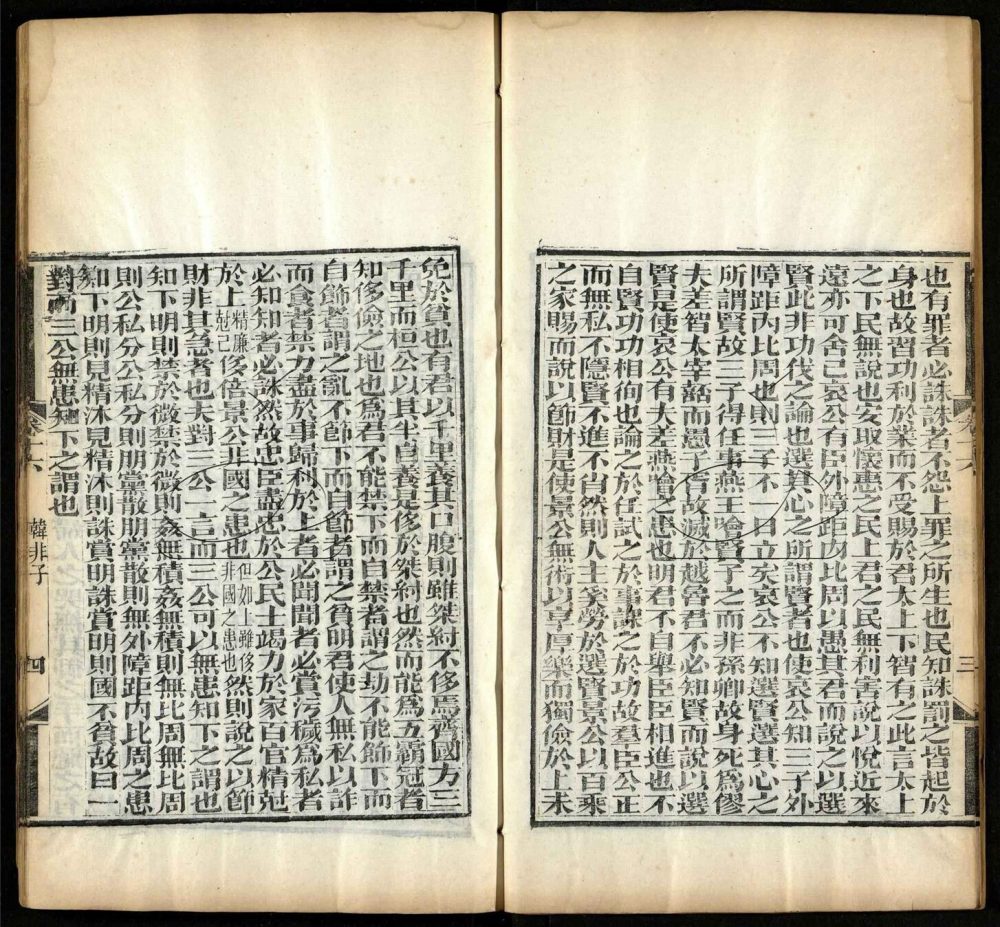 也有罪者必誅誅者不怨上罪之所生也民知誅罰之皆起於
身也故習功利於業而不受賜於君太上下智有之此言太上
之下民無說也安取懷惠之民上君之民無利害說以悅近來
遠亦可舍己哀公有臣外障距內比周以愚其君而說之以選
賢此非功伐之論也選其心之所謂賢者也使哀公知三子外
障距內比周也則三子不一日立矣哀公不知選賢選其心之
所謂賢故三子得任事燕王噲賢子之而非孫卿故身死爲僇
夫差智太宰嚭而愚子胥故滅於越魯君不必知賢而說以選
賢是使哀公有夫差燕噲之患也明君不自舉臣臣相進也不
自賢功功相徇也論之於任試之於事課之於功故羣臣公正
而無私不隱賢不進不肖然則人主奚勞於選賢景公以百乘
之家賜而說以節財是使景公無術以享厚樂而獨儉於上未
三
免於貧也有君以千里養其口腹則雖桀紂不侈焉齊國方三
千里而桓公以其半自養是侈於桀紂也然而能爲五霸冠者
知侈儉之地也爲君不能禁下而自禁者謂之劫不能飾下而
自飾者謂之亂不節下而自節者謂之貧明君使人無私以詐
而食者禁力盡於事歸利於上者必聞聞者必賞污穢爲私者
必知知者必誅然故忠臣盡忠於公民士竭力於家百官精尅
於上精廉尅己侈倍景公非國之患也但如上雖侈非國之患也然則說之以節
財非其急者也夫對三公一言而三公可以無患知下之謂也
知下明則禁於微禁於微則姦無積姦無積則無比周無比周
則公私分公私分則朋黨散朋黨散則無外障距內比周之患
知下明則見精沐見精沐則誅賞明誅賞明則國不貧故曰一
對而三公無患知下之謂也
卷十六 韓非子 四